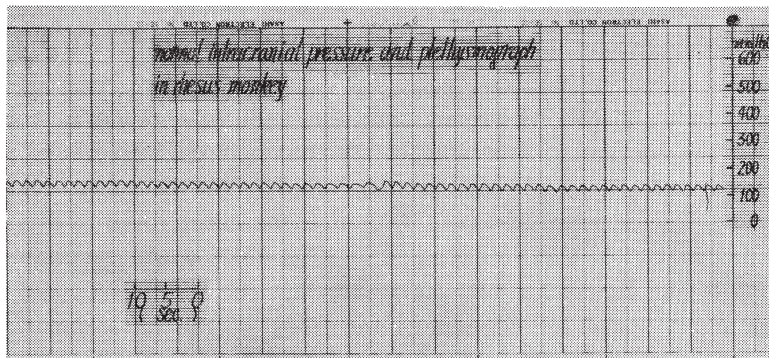 ASAHI ELECTRON CO.,LTD ASAHI ELECTRON CO.,LTD
normal intracranial pressure and plethysmograph
in rhesus monkey
600
500
400
300
200
100
0
10 5 0
( sec. )